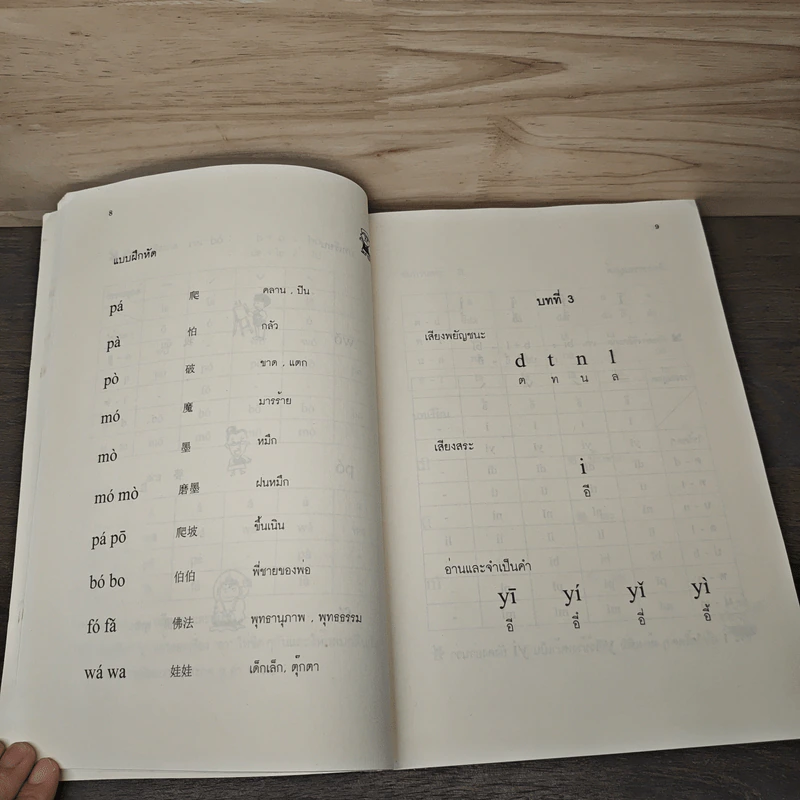 8
แบบฝึกหัด
pá 爬 คลาน , ปีน
pà 怕 กลัว
pò 破 ขาด , แตก
mó 魔 มารร้าย
mò 墨 หมึก
mó mò 磨墨 ฝนหมึก
pá pō 爬坡 ขึ้นเนิน
bó bo 伯伯 พี่ชายของพ่อ
fó fǎ 佛法 พุทธานุภาพ , พุทธธรรม
wá wa 娃娃 เด็กเล็ก, ตุ๊กตา
9
บทที่ 3
เสียงพยัญชนะ
d t n l
ต ท น ล
เสียงสระ
i
อี
อ่านและจำเป็นคำ
yī yí yǐ yì
อี อี๋ อี่ อี้